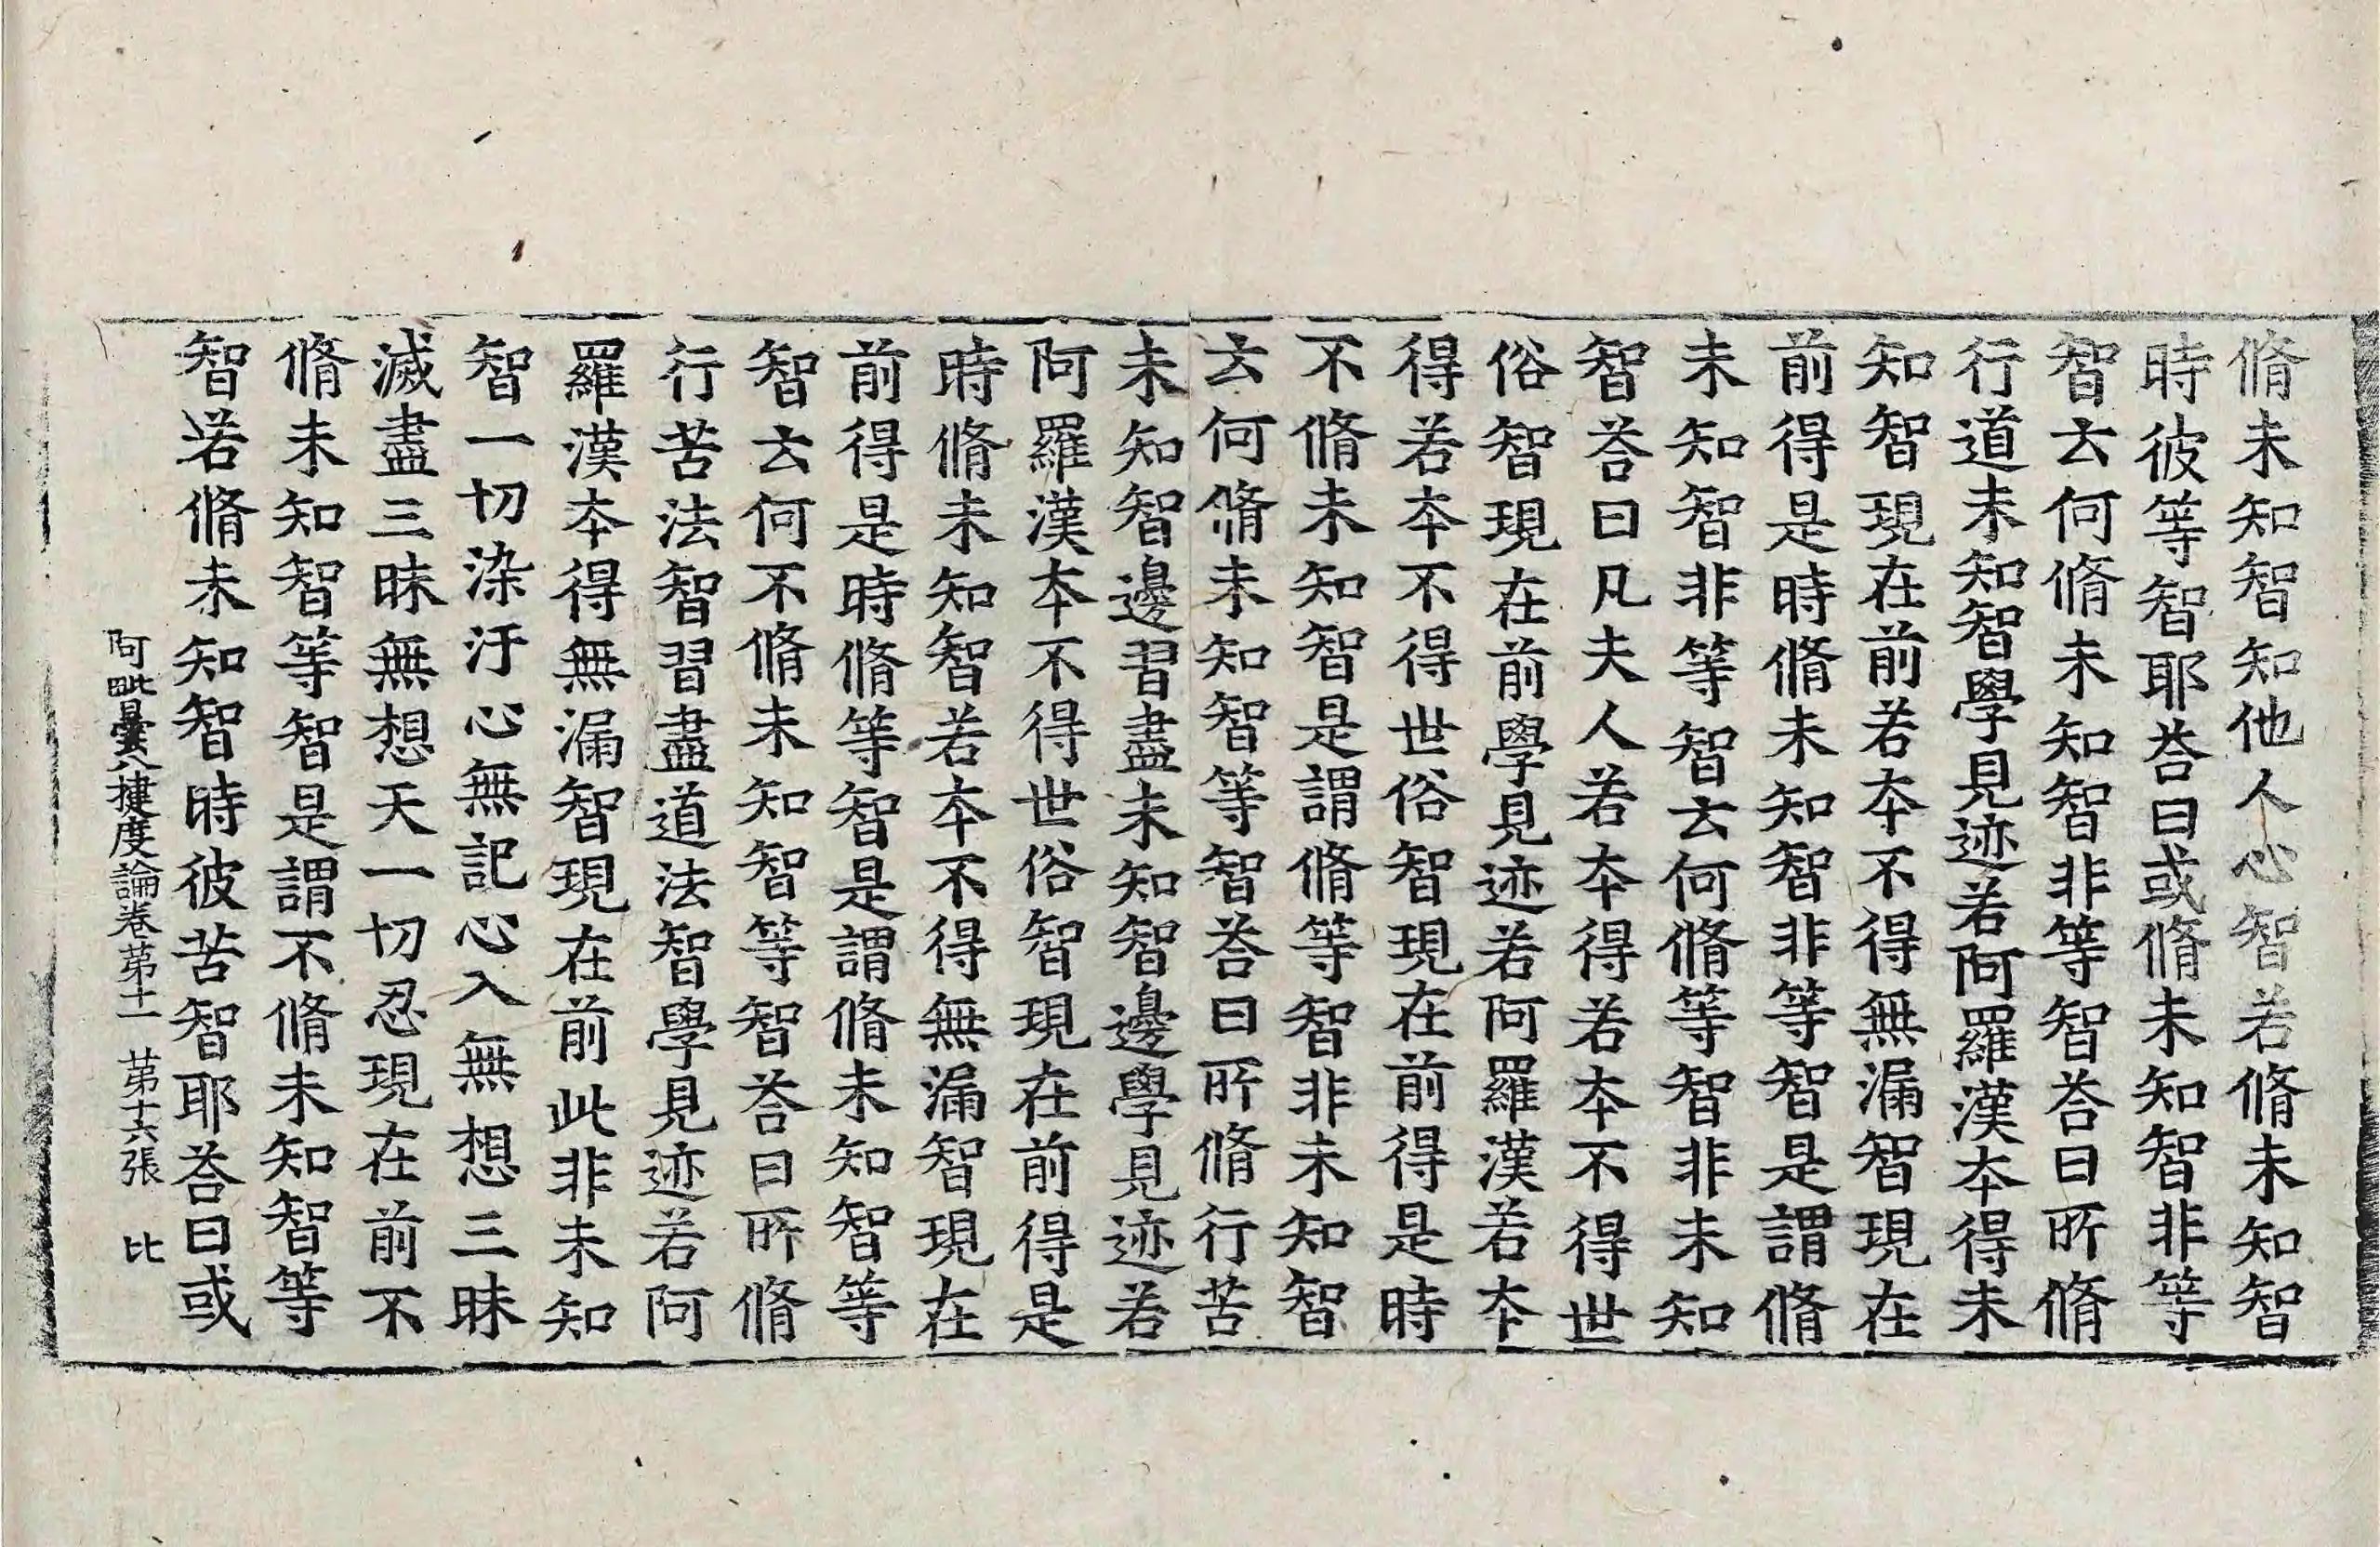 脩未知智知他人心智若脩未知智
時彼等智耶荅曰或脩未知智非等
智云何脩未知智非等智荅曰所脩
行道未知智學見迹若阿羅漢本得未
知智現在前若本不得無漏智現在
前得是時脩未知智非等智是謂脩
未知智非等智云何脩等智非未知
智荅曰凡夫人若本得若本不得世
俗智現在前學見迹若阿羅漢若本
得若本不得世俗智現在前得是時
不脩未知智是謂脩等智非未知智
云何脩未知智等智荅曰所脩行苦
未知智邊習盡未知智邊學見迹若
阿羅漢本不得世俗智現在前得是
時脩未知智若本不得無漏智現在
前得是時脩等智是謂脩未知智等
智云何不脩未知智等智荅曰所脩
行苦法智習盡道法智學見迹若阿
羅漢本得無漏智現在前此非未知
智一切染汙心無記心入無想三昧
滅盡三昧無想天一切忍現在前不
脩未知智等智是謂不脩未知智等
智若脩未知智時彼苦智耶荅曰或
阿毗曇八揵度論卷苐十一 苐十六張 比